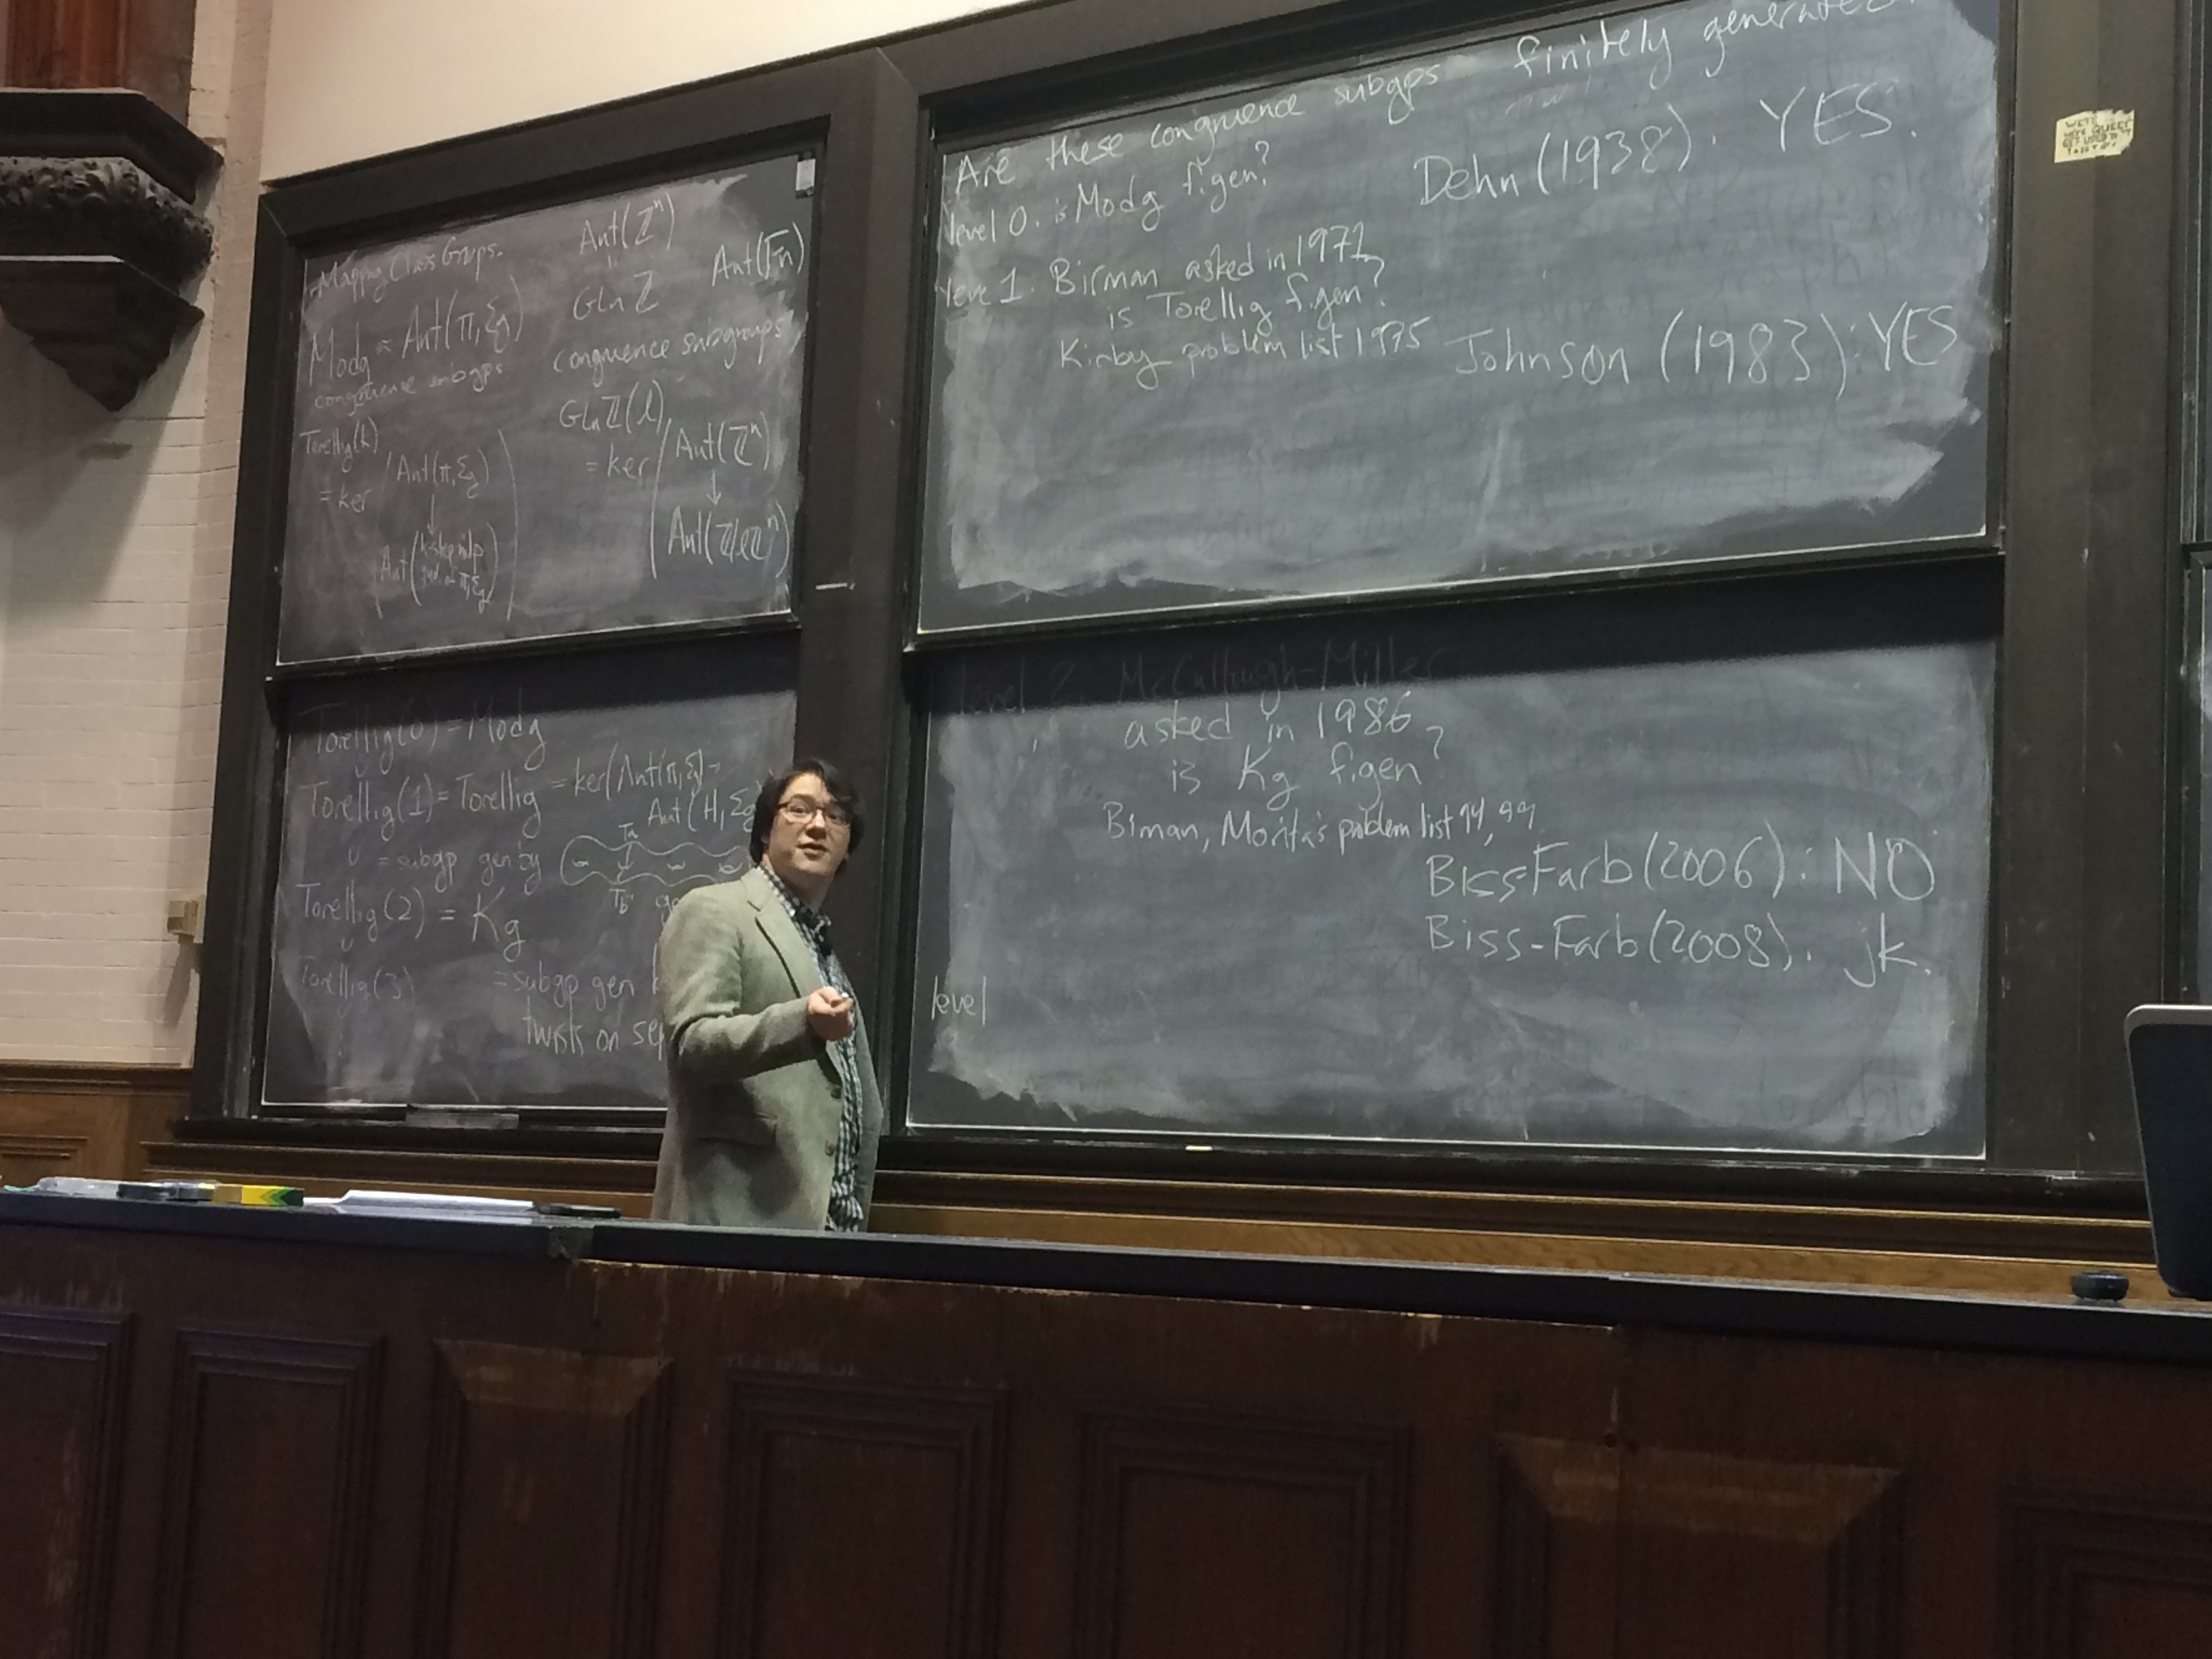 Mapping Class Groups.
Aut(ℤⁿ)
Aut(Fn)
Modg ≈ Aut(π₁Σg)
GLnℤ
congruence subgps
congruence subgroups
Torellig(k)
= ker (Aut(π₁Σg)
↓
Aut(k-step nilp
of π₁Σg))
GLnℤ(ℓ)
= ker (Aut(ℤⁿ)
↓
Aut(ℤ/ℓℤⁿ))
Torellig(0) = Modg
Torellig(1) = Torellig = ker(Aut(π₁Σg) →
Aut(H₁Σg
∪ = subgp gen by
Ta
Tb⁻¹
Torellig(2) = Kg
∪
Torellig(3)
= subgp gen
twists on sep
Are these congruence subgps finitely generated?
level 0. is Modg f.gen?
Dehn (1938). YES.
level 1. Birman asked in 1971
is Torellig f.gen?
Kirby problem list 1975
Johnson (1983): YES
level 2. McCullough-Miller
asked in 1986
is Kg f.gen?
Birman, Morita's problem list 94, 99
Biss-Farb (2006): NO
Biss-Farb (2008). jk.
level